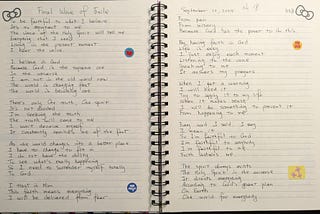 Final Wave of Exile
Be faithful to what I believe
It's so important to me
The voice of the Holy Spirit will tell me
Everything that I need
Living in the present moment
I hear the voice
I believe in God
Because God is the supreme one
In the universe
I am not in the old world now
The world is changing fast
The world is becoming one
There's only One truth, One spirit
It's not divided
I'm seeking the truth
The truth will come to me
I won't deceive myself
It constantly reminds me of the fact
As the world changes into a better place
I have to change to fit in
I do not have the ability
To see what's really happening
So I need to surrender myself totally
To God
I trust in Him
This faith means everything
I will be delivered from fear
September 20, 2020
From pain
From misery
Because God has the power to do this
By having faith in God
Life is easy
I just enjoy each moment
Listening to the voice
Speaking to me
It answers my prayers
When I get a warning
I will heed it
Try to apply it to my life
When it makes sense
I will do something to prevent it
From happening to me
Every word I said I say
I mean it
So I'm faithful to God
I'm faithful to anybody
I'm faithful to me
Faith sustains me
The spirit always exists
The Holy Spirit is the universe
It directs everything
According to God's great plan
On Earth
One world for everybody